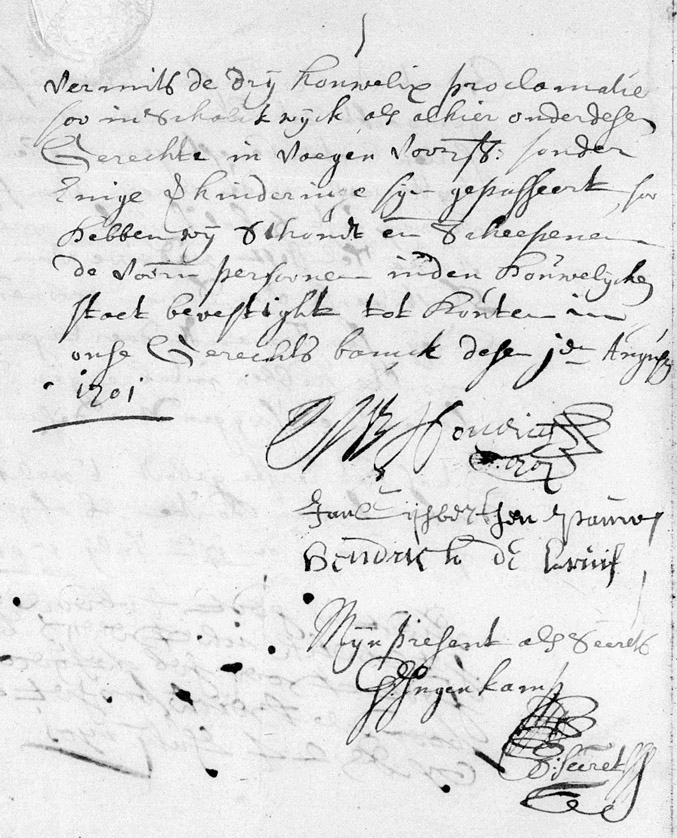 Vermits de drij houwelix proclamatie
soo in Schalckwijck als alhier onder desen
Gerechte in Voegen Voors: sonder
Enige Verhinderinge sijn gepasseert, soo
Hebben wij Schout en Scheepenen
de Voorn persoonen inden Houwelycken
staet bevestight tot Houten in
onse Gerechts banck desen jen Augusty
1701
Jan Gijsbertsen Pauw
Hendrick de Kruif
Mijn present als Secrets
Ingenkamp
Secret